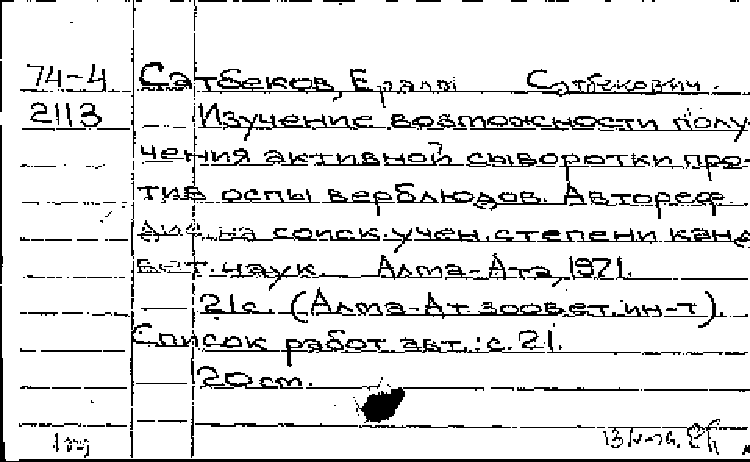 74-4 Сатбеков, Ералы Сатбекович.
2113 Изучение возможности полу-
чения активной сыворотки про-
тив оспы верблюдов. Автореф
дис. на соиск. учен. степени канд
вет. наук. Алма-Ата, 1971.
21 с. (Алма-Ат зоовет. ин-т).
Список работ авт.: с. 21.
20 см.